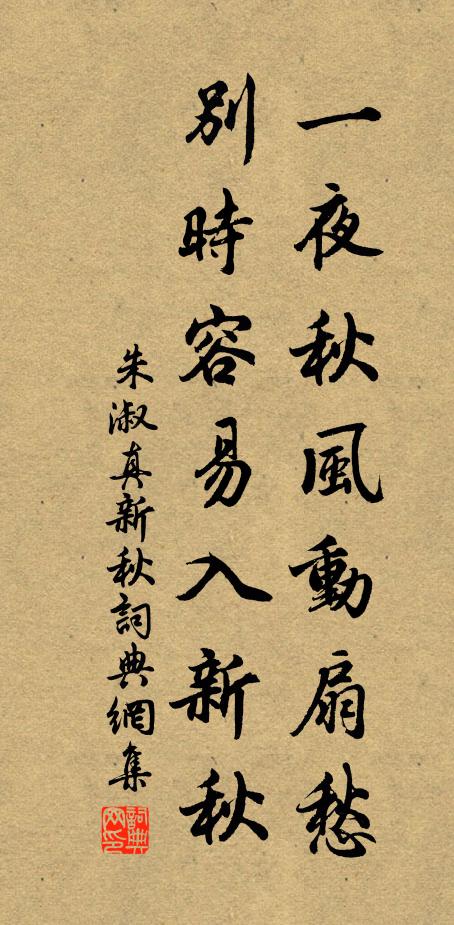 一夜秋風動扇愁
別時容易入新秋
朱淑真新秋詞典網集
詞典网印